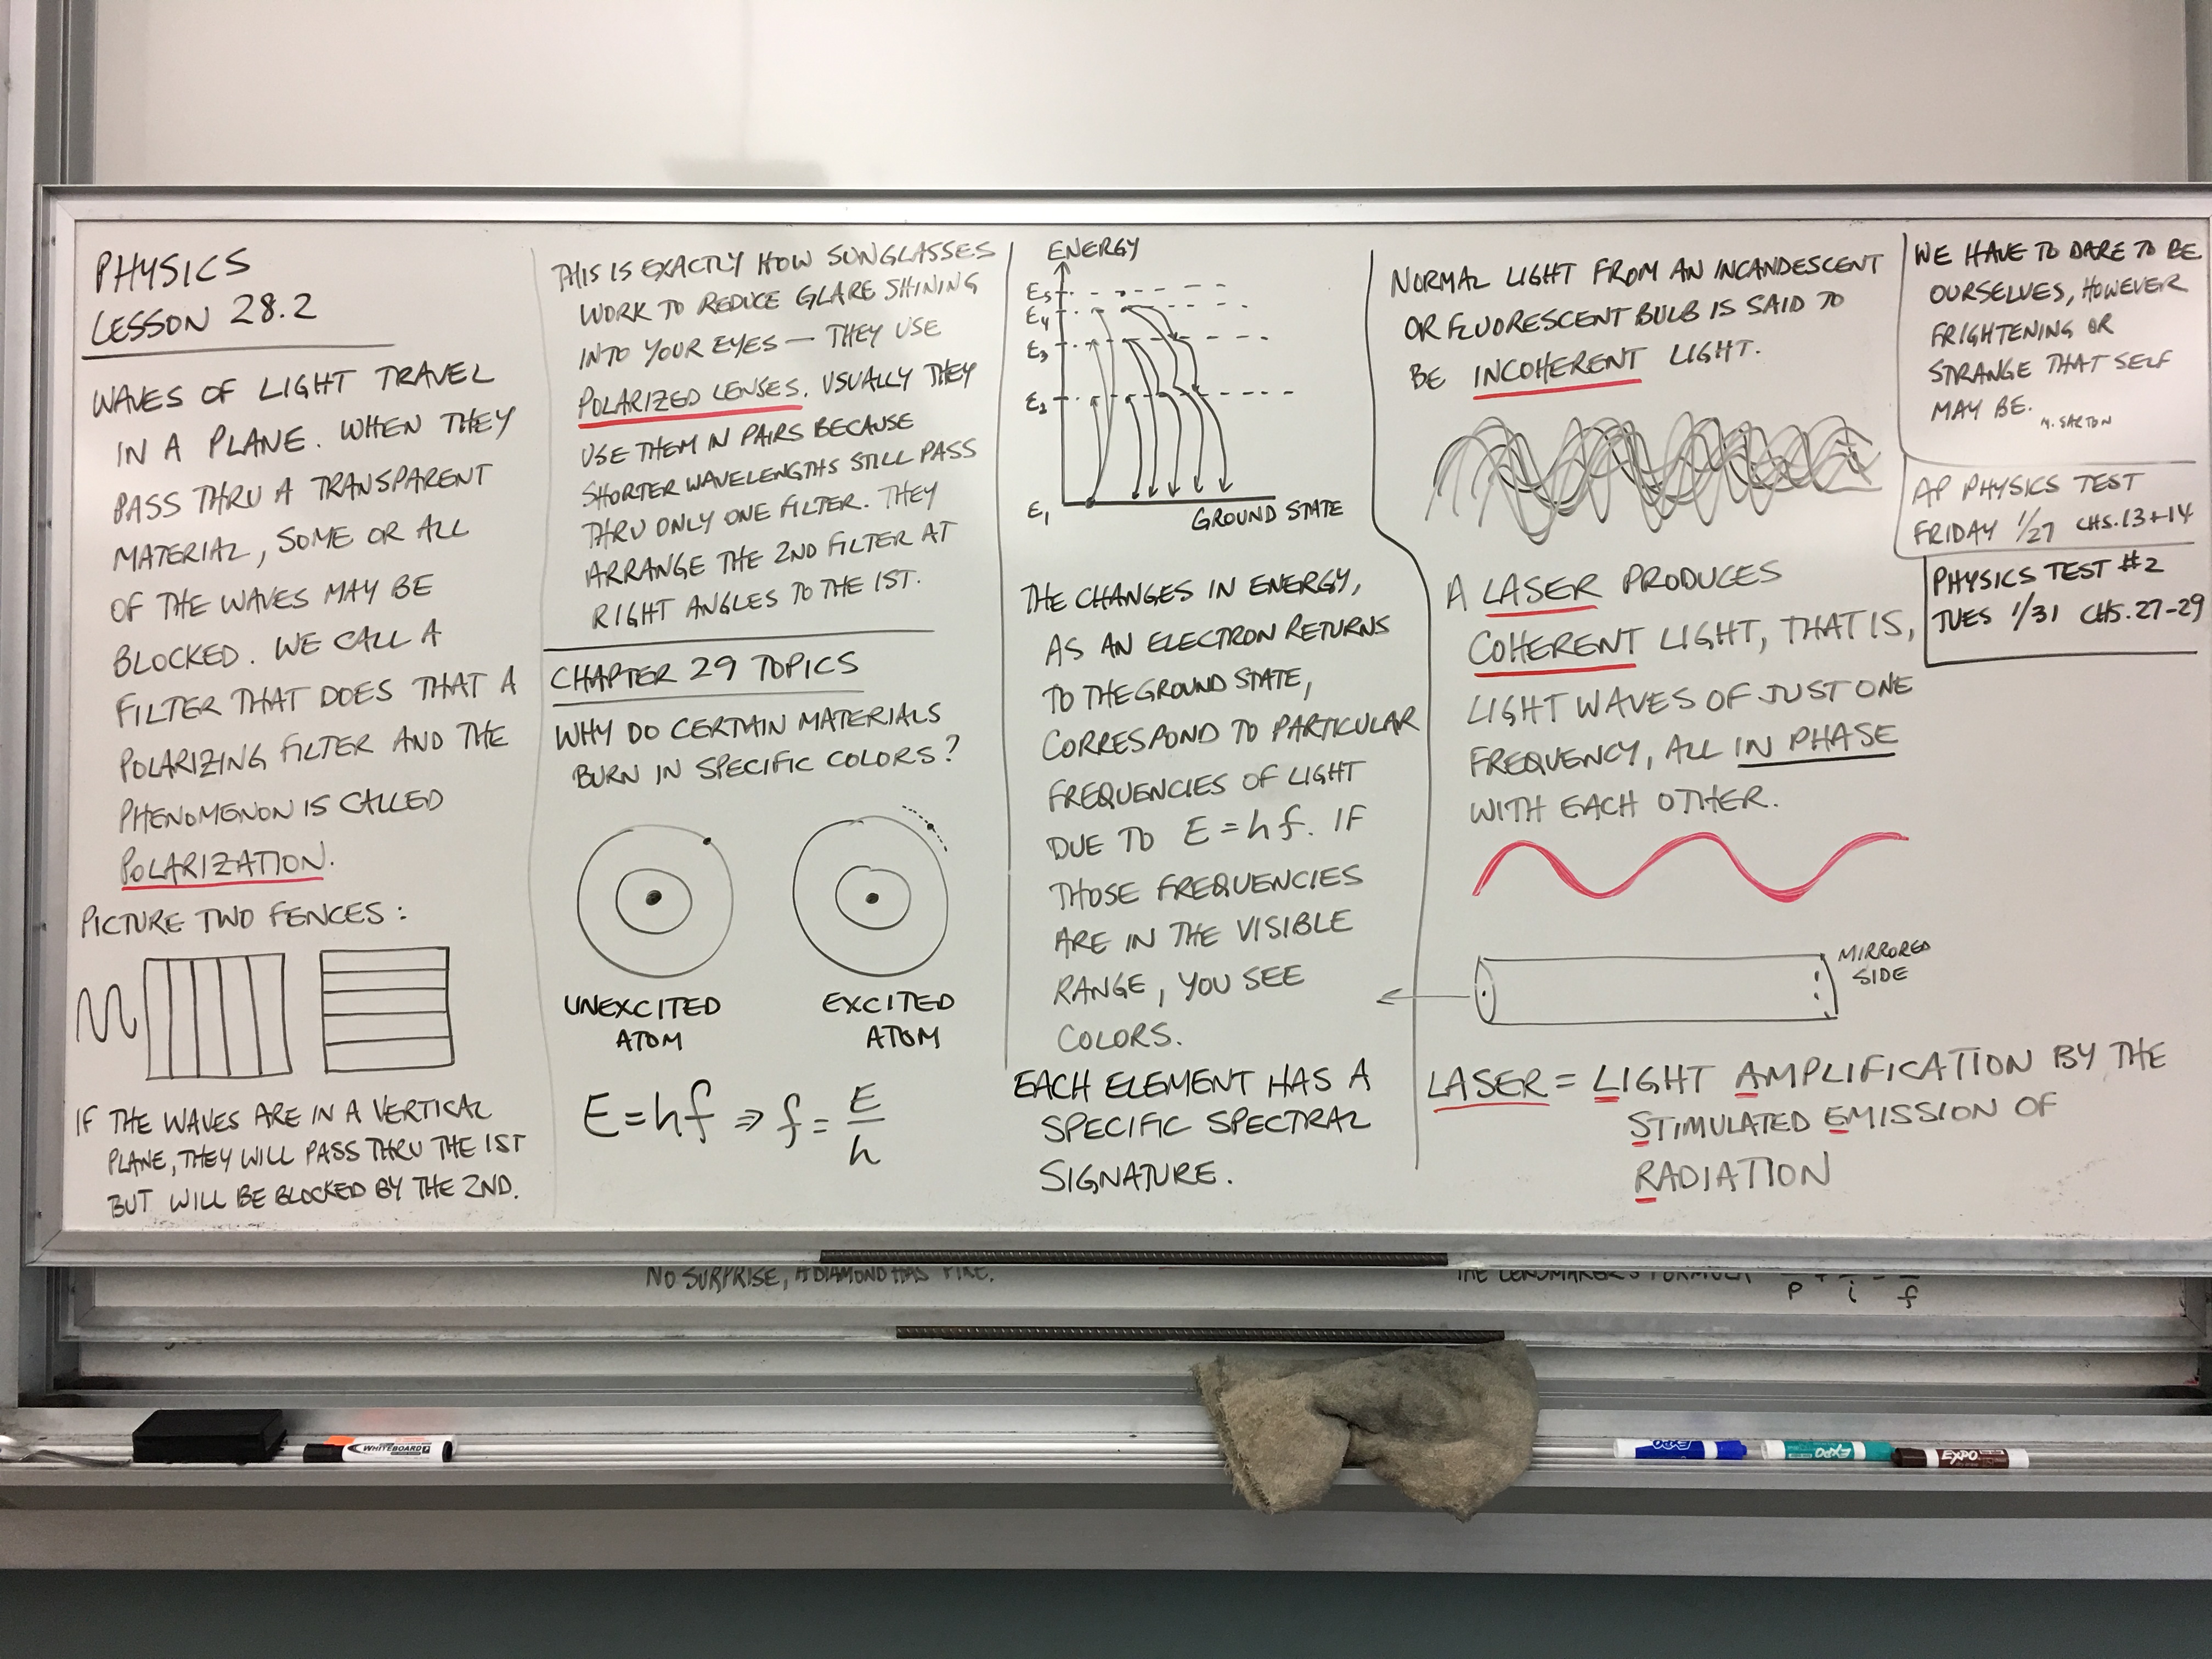 PHYSICS
LESSON 28.2
WAVES OF LIGHT TRAVEL
IN A PLANE. WHEN THEY
PASS THRU A TRANSPARENT
MATERIAL, SOME OR ALL
OF THE WAVES MAY BE
BLOCKED. WE CALL A
FILTER THAT DOES THAT A
POLARIZING FILTER AND THE
PHENOMENON IS CALLED
POLARIZATION.
PICTURE TWO FENCES:
IF THE WAVES ARE IN A VERTICAL
PLANE, THEY WILL PASS THRU THE 1ST
BUT WILL BE BLOCKED BY THE 2ND.
THIS IS EXACTLY HOW SUNGLASSES
WORK TO REDUCE GLARE SHINING
INTO YOUR EYES — THEY USE
POLARIZED LENSES. USUALLY THEY
USE THEM IN PAIRS BECAUSE
SHORTER WAVELENGTHS STILL PASS
THRU ONLY ONE FILTER. THEY
ARRANGE THE 2ND FILTER AT
RIGHT ANGLES TO THE 1ST.
CHAPTER 29 TOPICS
WHY DO CERTAIN MATERIALS
BURN IN SPECIFIC COLORS?
UNEXCITED
ATOM
EXCITED
ATOM
E = hf ⇒ f = E/h
ENERGY
E5
E4
E3
E2
E1
GROUND STATE
THE CHANGES IN ENERGY,
AS AN ELECTRON RETURNS
TO THE GROUND STATE,
CORRESPOND TO PARTICULAR
FREQUENCIES OF LIGHT
DUE TO E = hf. IF
THOSE FREQUENCIES
ARE IN THE VISIBLE
RANGE, YOU SEE
COLORS.
EACH ELEMENT HAS A
SPECIFIC SPECTRAL
SIGNATURE.
NORMAL LIGHT FROM AN INCANDESCENT
OR FLUORESCENT BULB IS SAID TO
BE INCOHERENT LIGHT.
A LASER PRODUCES
COHERENT LIGHT, THAT IS,
LIGHT WAVES OF JUST ONE
FREQUENCY, ALL IN PHASE
WITH EACH OTHER.
MIRRORED
SIDE
LASER = LIGHT AMPLIFICATION BY THE
STIMULATED EMISSION OF
RADIATION
WE HAVE TO DARE TO BE
OURSELVES, HOWEVER
FRIGHTENING OR
STRANGE THAT SELF
MAY BE.
M. SARTON
AP PHYSICS TEST
FRIDAY 1/27 CHS. 13+14
PHYSICS TEST #2
TUES 1/31 CHS. 27-29
NO SURPRISE, A DIAMOND HAS FIRE.
THE LENSMAKER'S FORMULA
p + i = f
WHITEBOARD
EXPO
EXPO
EXPO